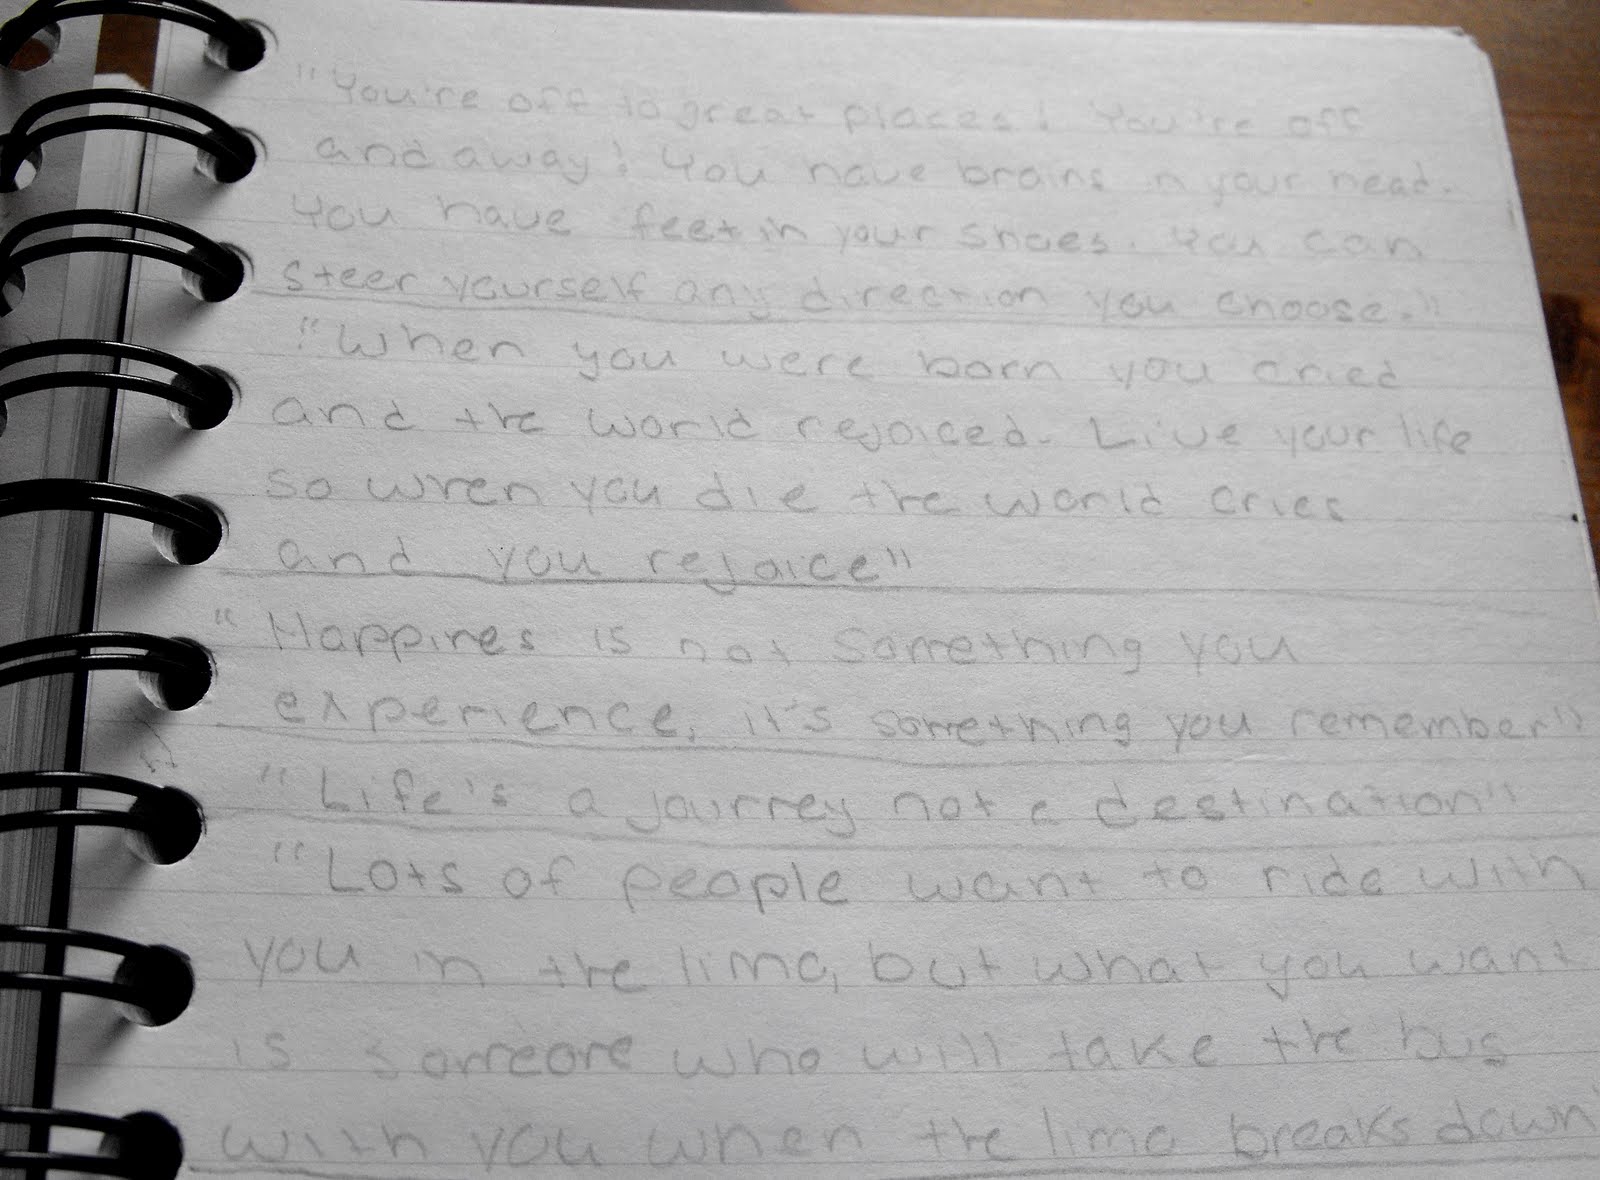 "You're off to great places! You're off
and away! You have brains in your head.
You have feet in your shoes. You can
steer yourself any direction you choose."
"When you were born you cried
and the world rejoiced. Live your life
so when you die the world cries
and you rejoice"
"Happines is not something you
experience, it's something you remember"
"Life's a journey not a destination"
"Lots of people want to ride with
you in the limo, but what you want
is someone who will take the bus
with you when the limo breaks down"